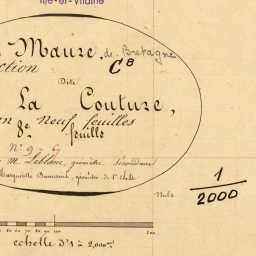 Ille-et-Vilaine
Maure, de Bretagne
ction C B
Dite
La Couture,
en Neuf feuilles
8e feuille
N° 9 - 9
M. Leblanc, géomètre
géomètre de 1re classe
1
2000
echelle d'1 à 2,000me.